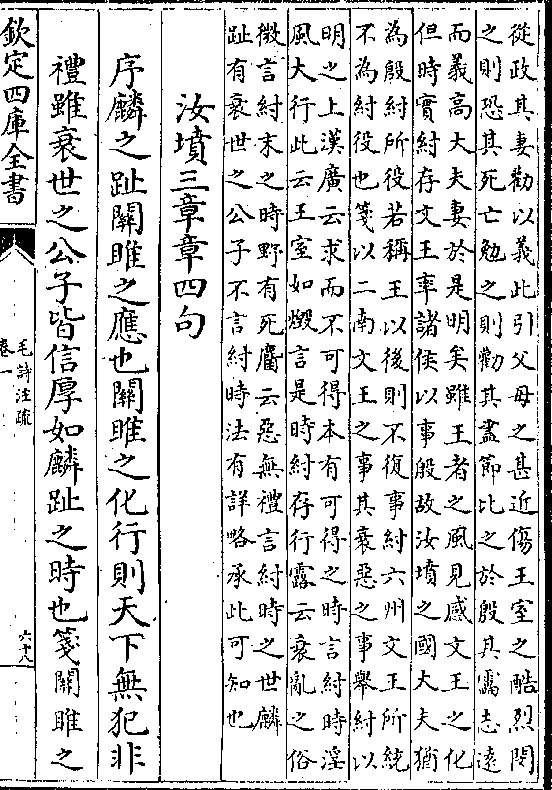 從政其妻勸以義此引父母之甚近傷王室之酷烈閔
之則恐其死亡勉之則勸其盡節比之於殷其靁志遠
而義高大夫妻於是明矣雖王者之風見感文王之化
但時實紂存文王率諸侯以事殷故汝墳之國大夫猶
為殷紂所役若稱王以後則不復事紂六州文王所統
不為紂役也箋以二南文王之事其衰惡之事舉紂以
明之上漢廣云求而不可得本有可得之時言紂時淫
風大行此云王室如燬言是時紂存行露云衰亂之俗
微言紂末之時野有死麕云惡無禮言紂時之世麟
趾有衰世之公子不言紂時法有詳略承此可知也
汝墳三章章四句
序麟之趾關雎之應也關雎之化行則天下無犯非
禮雖衰世之公子皆信厚如麟趾之時也箋關雎之
欽定四庫全書
毛詩注疏
卷一
六十八